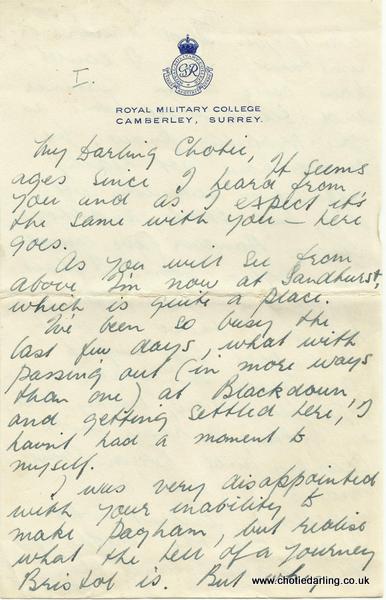 I.
ROYAL MILITARY COLLEGE
CAMBERLEY, SURREY.
My Darling Chotie, It seems
ages since I heard from
you and as I expect it's
the same with you – here
goes.
As you will see from
above I'm now at Sandhurst,
which is quite a place.
I've been so busy the
last few days, what with
passing out (in more ways
than one) at Blackdown,
and getting settled here, I
havn't had a moment to
myself.
I was very disappointed
with your inability to
make Pagham, but realise
what the hell of a journey
Bristol is. But why
www.chotiedarling.co.uk